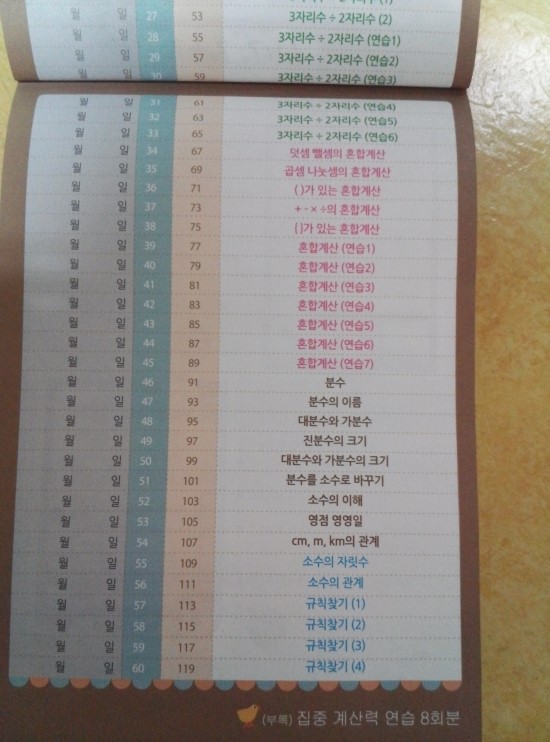 월 일 27 53 3자리수 ÷ 2자리수 (2)
월 일 28 55 3자리수 ÷ 2자리수 (연습1)
월 일 29 57 3자리수 ÷ 2자리수 (연습2)
월 일 30 59 3자리수 ÷ 2자리수 (연습3)
월 일 31 61 3자리수 ÷ 2자리수 (연습4)
월 일 32 63 3자리수 ÷ 2자리수 (연습5)
월 일 33 65 3자리수 ÷ 2자리수 (연습6)
월 일 34 67 덧셈 뺄셈의 혼합계산
월 일 35 69 곱셈 나눗셈의 혼합계산
월 일 36 71 ( )가 있는 혼합계산
월 일 37 73 + - × ÷의 혼합계산
월 일 38 75 { }가 있는 혼합계산
월 일 39 77 혼합계산 (연습1)
월 일 40 79 혼합계산 (연습2)
월 일 41 81 혼합계산 (연습3)
월 일 42 83 혼합계산 (연습4)
월 일 43 85 혼합계산 (연습5)
월 일 44 87 혼합계산 (연습6)
월 일 45 89 혼합계산 (연습7)
월 일 46 91 분수
월 일 47 93 분수의 이름
월 일 48 95 대분수와 가분수
월 일 49 97 진분수의 크기
월 일 50 99 대분수와 가분수의 크기
월 일 51 101 분수를 소수로 바꾸기
월 일 52 103 소수의 이해
월 일 53 105 영점 영영일
월 일 54 107 cm, m, km의 관계
월 일 55 109 소수의 자릿수
월 일 56 111 소수의 관계
월 일 57 113 규칙찾기 (1)
월 일 58 115 규칙찾기 (2)
월 일 59 117 규칙찾기 (3)
월 일 60 119 규칙찾기 (4)
(부록) 집중 계산력 연습 8회분